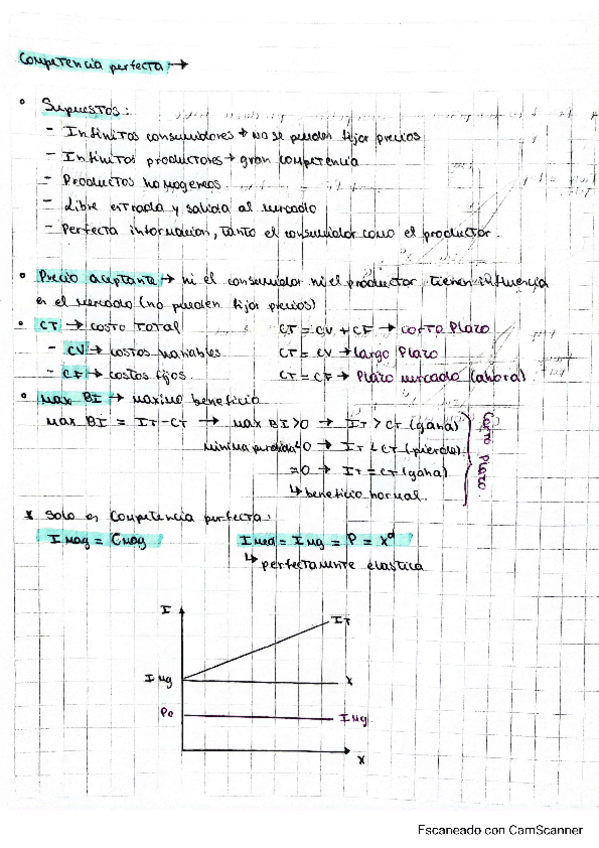 Competencia perfecta →
° Supuestos:
- Infinitos consumidores → no se pueden fijar precios
- Infinitos productores → gran competencia
- Productos homogeneos
- Libre entrada y salida al mercado
- Perfecta informacion, tanto el consumidor como el productor.
° Precio aceptante → ni el consumidor ni el productor tienen influencia
en el mercado (no pueden fijar precios)
° CT → costo total CT = CV + CF → corto plazo
- CV → costos variables CT = CV → largo plazo
- CF → costos fijos CT = CF → plazo mercado (ahora)
° Max BI → maximo beneficio
Max BI = IT - CT → max BI > 0 → IT > CT (gana)
minima perdida < 0 → IT < CT (pierde)
= 0 → IT = CT (gana)
↳ beneficio normal.
Corto Plazo
* Solo en competencia perfecta:
I mag = C mag I med = I mg = P = x^d
↳ perfectamente elastica
I
IT
I mg
x
Po
I mg
x
Escaneado con CamScanner